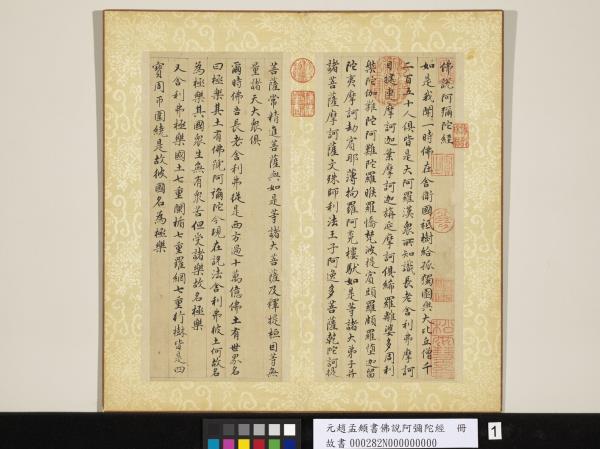 佛說阿彌陀經
如是我聞一時佛在舍衛國祇樹給孤獨園與大比丘僧千
二百五十人俱皆是大阿羅漢眾所知識長老舍利弗摩訶
目揵連摩訶迦葉摩訶迦旃延摩訶俱絺羅離婆多周利
槃陀伽難陀阿難陀羅睺羅憍梵波提賓頭羅頗羅墮迦留
陀夷摩訶劫賓那薄拘羅阿㝹樓馱如是等諸大弟子并
諸菩薩摩訶薩文殊師利法王子阿逸多菩薩乾陀訶提
菩薩常精進菩薩與如是等諸大菩薩及釋提桓因等無
量諸天大眾俱
爾時佛告長老舍利弗從是西方過十萬億佛土有世界名
曰極樂其土有佛號阿彌陀今現在說法舍利弗彼土何故名
為極樂其國眾生無有眾苦但受諸樂故名極樂
又舍利弗極樂國土七重闌楯七重羅網七重行樹皆是四
寶周帀圍繞是故彼國名為極樂
元趙孟頫書佛說阿彌陀經 冊
故書000282N000000000
1